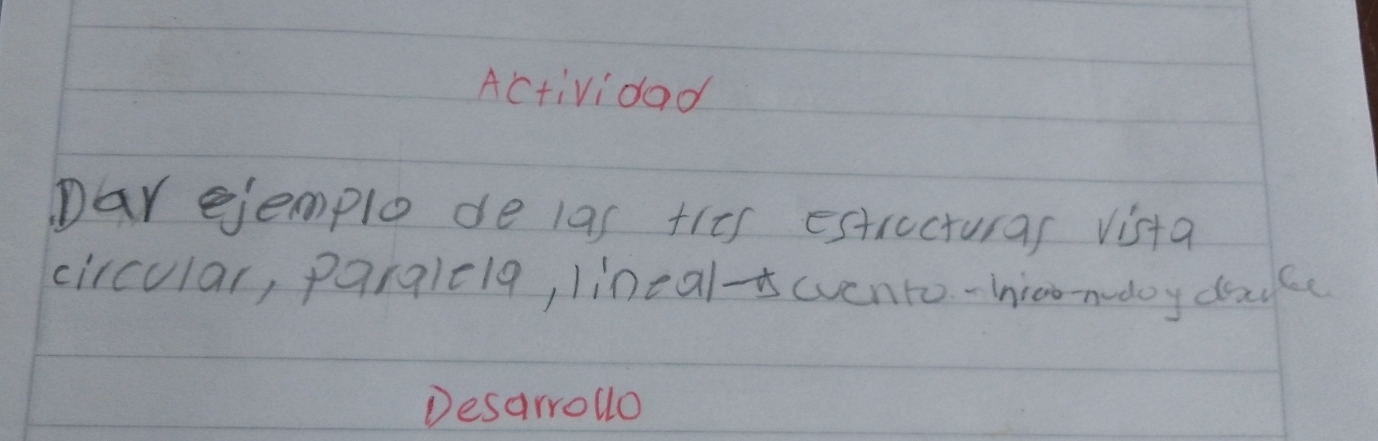 Actividad
Dar ejemplo de las tres estructuras vista
circular, paralela, lineal → cuento - inicio - nudo y
Desarrollo